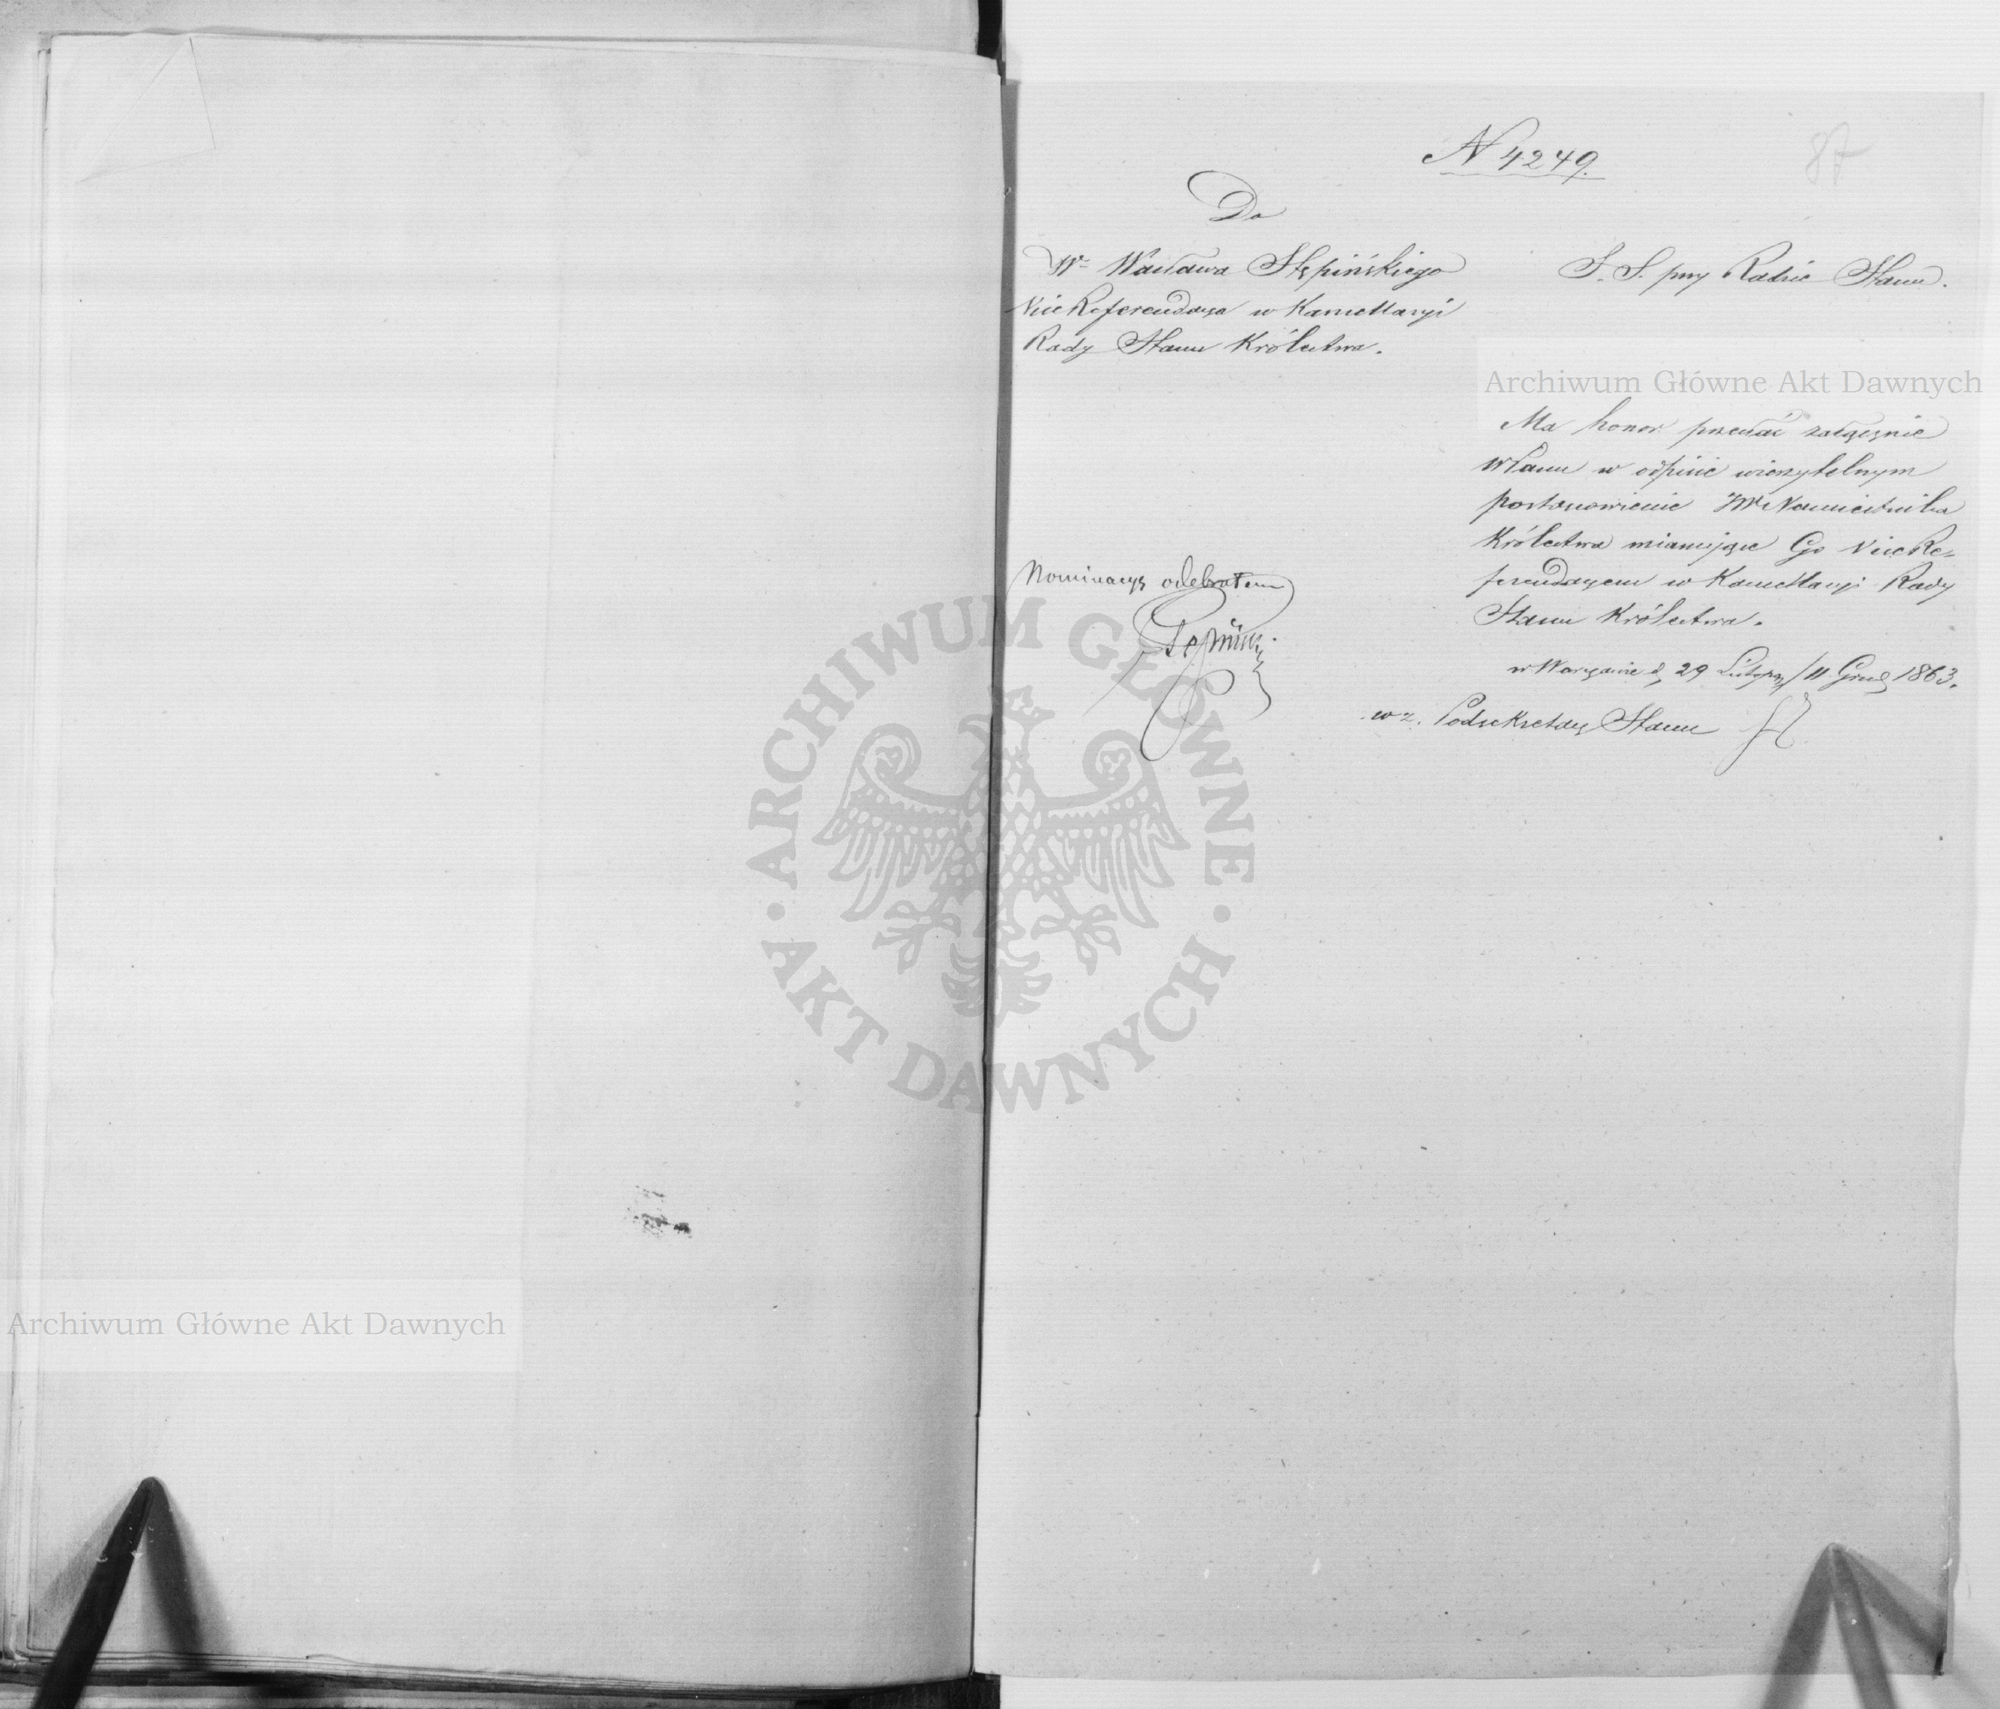 N 4249.
87
Do
W. Wacława Stępińskiego
ViceReferendarza w Kancellaryi
Rady Stanu Królestwa.
S. S. przy Radzie Stanu.
Archiwum Główne Akt Dawnych
Ma honor przesłać załącznie
WPanu w odpisie wierzytelnym
postanowienie JW Namiestnika
Królestwa mianujące Go ViceRe=
ferendarzem w Kancellaryi Rady
Stanu Królestwa.
w Warszawie d. 29 Listop./11 Grud. 1863.
w z. Podsekretarz Stanu
Nominacyę odebrałem
Stępiński
ARCHIWUM GŁÓWNE AKT DAWNYCH
Archiwum Główne Akt Dawnych